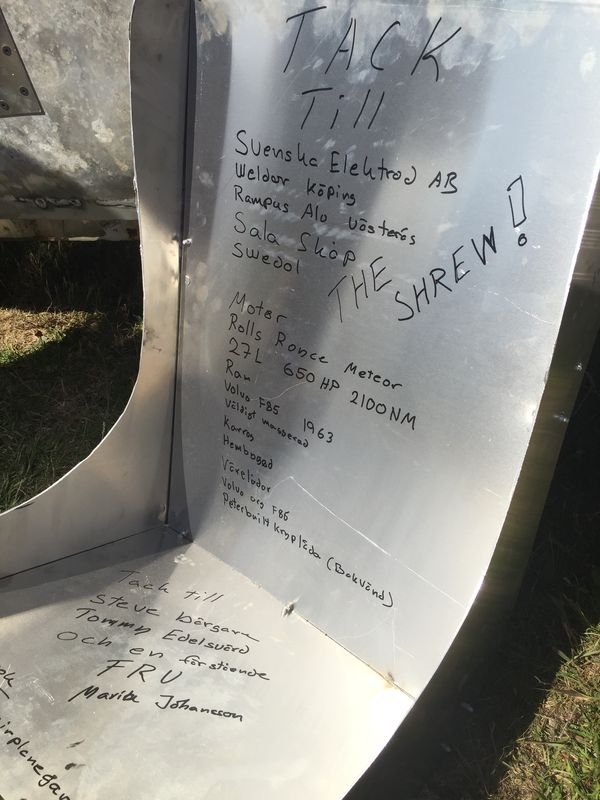 TACK
Till
Svenska Elektrod AB
Weldor Köping
Rampus Alu Västerås
Sala Skop
Swedol
THE SHREW!
Motor
Rolls Ronce Meteor
27L 650 HP 2100 NM
Ram
Volvo F85 1963
Väldigt
Kaross
Hembyggd
Växellådor
Volvo org F85
Peterbuilt Kryplåda (Bakvänd)
Tack till
Steve bärgare
Tommy Edelsvärd
Och en förstående
FRU
Marita Johansson